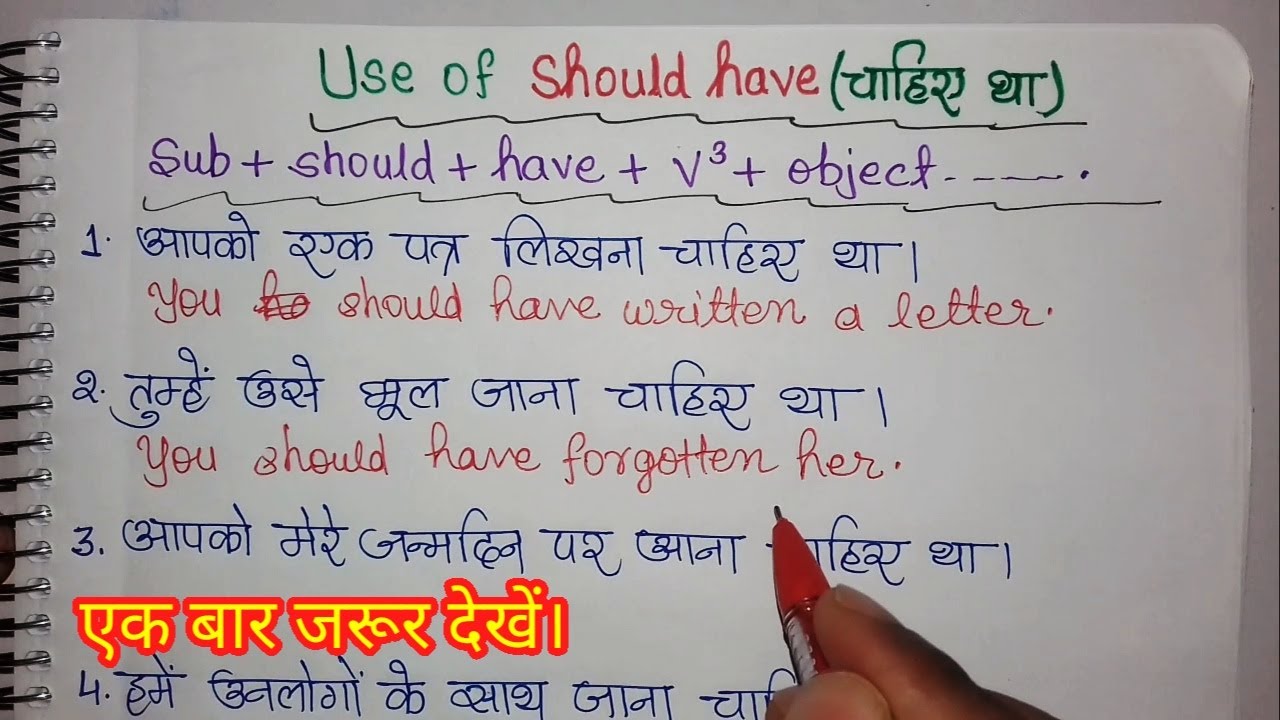 Use of should have (चाहिए था)
Sub + should + have + V³ + object-----.
1. आपको एक पत्र लिखना चाहिए था।
You should have written a letter.
२. तुम्हें उसे भूल जाना चाहिए था।
You should have forgotten her.
3. आपको मेरे जन्मदिन पर आना चाहिए था।
एक बार जरूर देखें।
4. हमें उनलोगों के साथ जाना